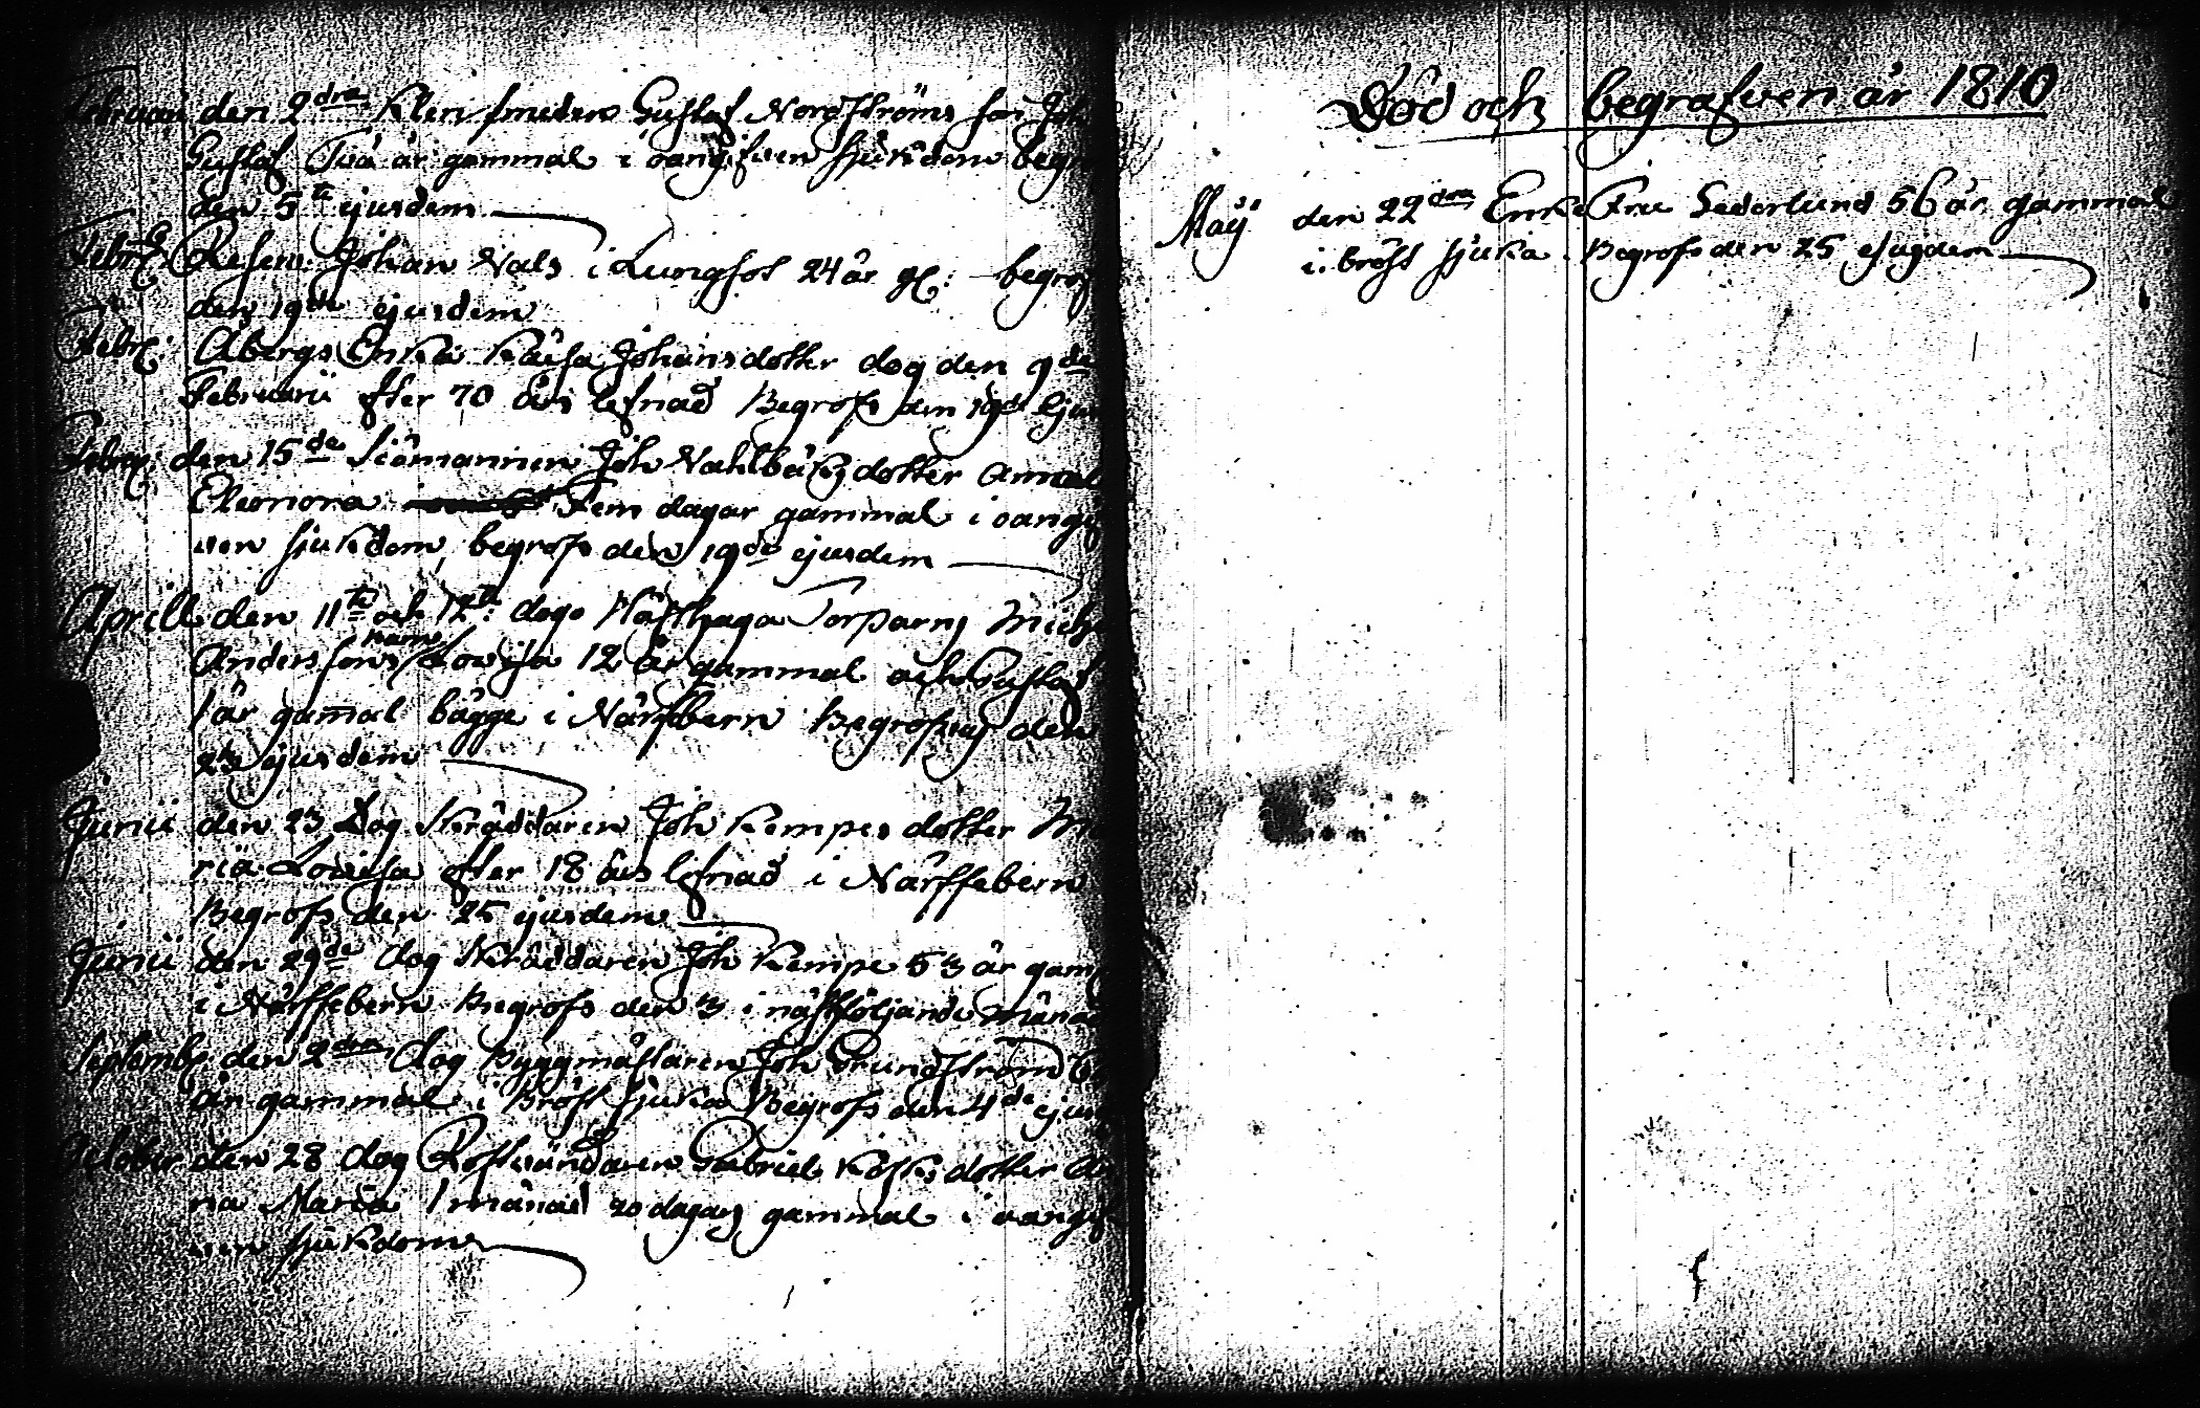 Februari den 2dra Klen smeden Gustaf Nordströms son Joh
Gustaf Två år gammal i oangifven sjukdom begr
den 5te ejusdem
Febr: Reserv: Johan Vals i Lungsot 24 år gl: begrof
den 19de ejusdem
Febr: Åbergs Enka Kaisa Johansdotter dog den 9de
Februarii efter 70 års lefnad Begrofs den 19de Ejus
Febr: den 15de Siömannen Joh Vahlbäks dotter Annal
Eleonora Fem dagar gammal i oangif
ven sjukdom, begrofs den 19de ejusdem
Aprill den 11te och 12te: dogo Torparns Mich
Andersons barn Lovisa 12 år gammal och Gustaf
1 år gamal bägge i Närfebern Begrofvos den
23 ejusdem
Junii den 23 Dog Skräddaren Joh Kempes dotter Ma
ria Lovisa efter 18 års lefnad i Närffebern
Begrofs den 25 ejusdem
Junii den 29de dog Skräddaren Joh Kempe 53 år gam
i Närffebern Begrofs den 3 i nästföljande Månad
Septembr den 2dra dog Byggmästaren Joh Grundström 6
år gammal i Bröst sjuka Begrofs den 4de ejus
October den 28 dog Gabriel dotter An
na Maria 1 månad 20 dagars gammal i oangif
ven sjukdom
Död och begrafven år 1810
Maÿ den 22dra Enke Fru Sederlund 56 år gammal
i bröst sjuka Begrofs den 25 ejusdem